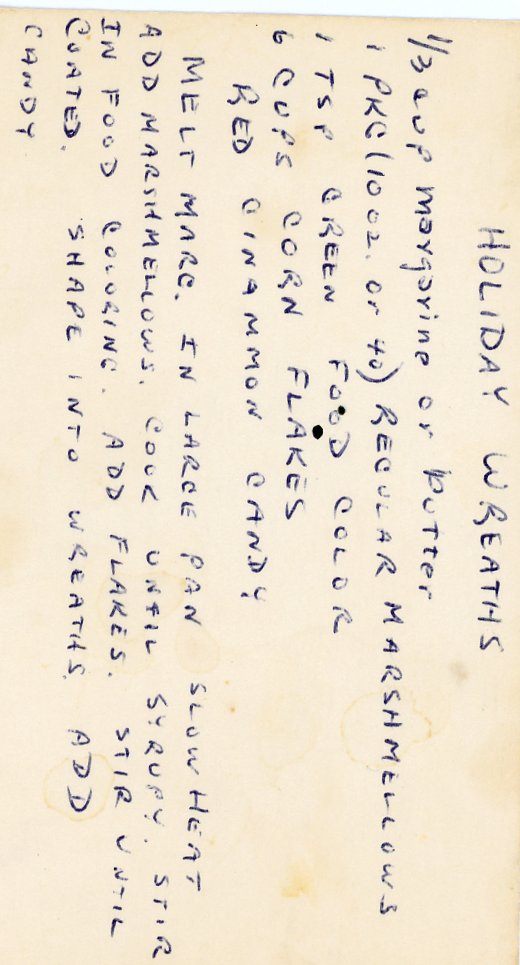 HOLIDAY WREATHS
1/3 cup margarine or butter
1 PKG (10 oz. or 40) REGULAR MARSHMELLOWS
1 TSP GREEN FOOD COLOR
6 CUPS CORN FLAKES
RED CINAMMON CANDY
MELT MARG. IN LARGE PAN SLOW HEAT
ADD MARSHMELLOWS. COOK UNTIL SYRUPY. STIR
IN FOOD COLORING. ADD FLAKES. STIR UNTIL
COATED. SHAPE INTO WREATHS. ADD
CANDY